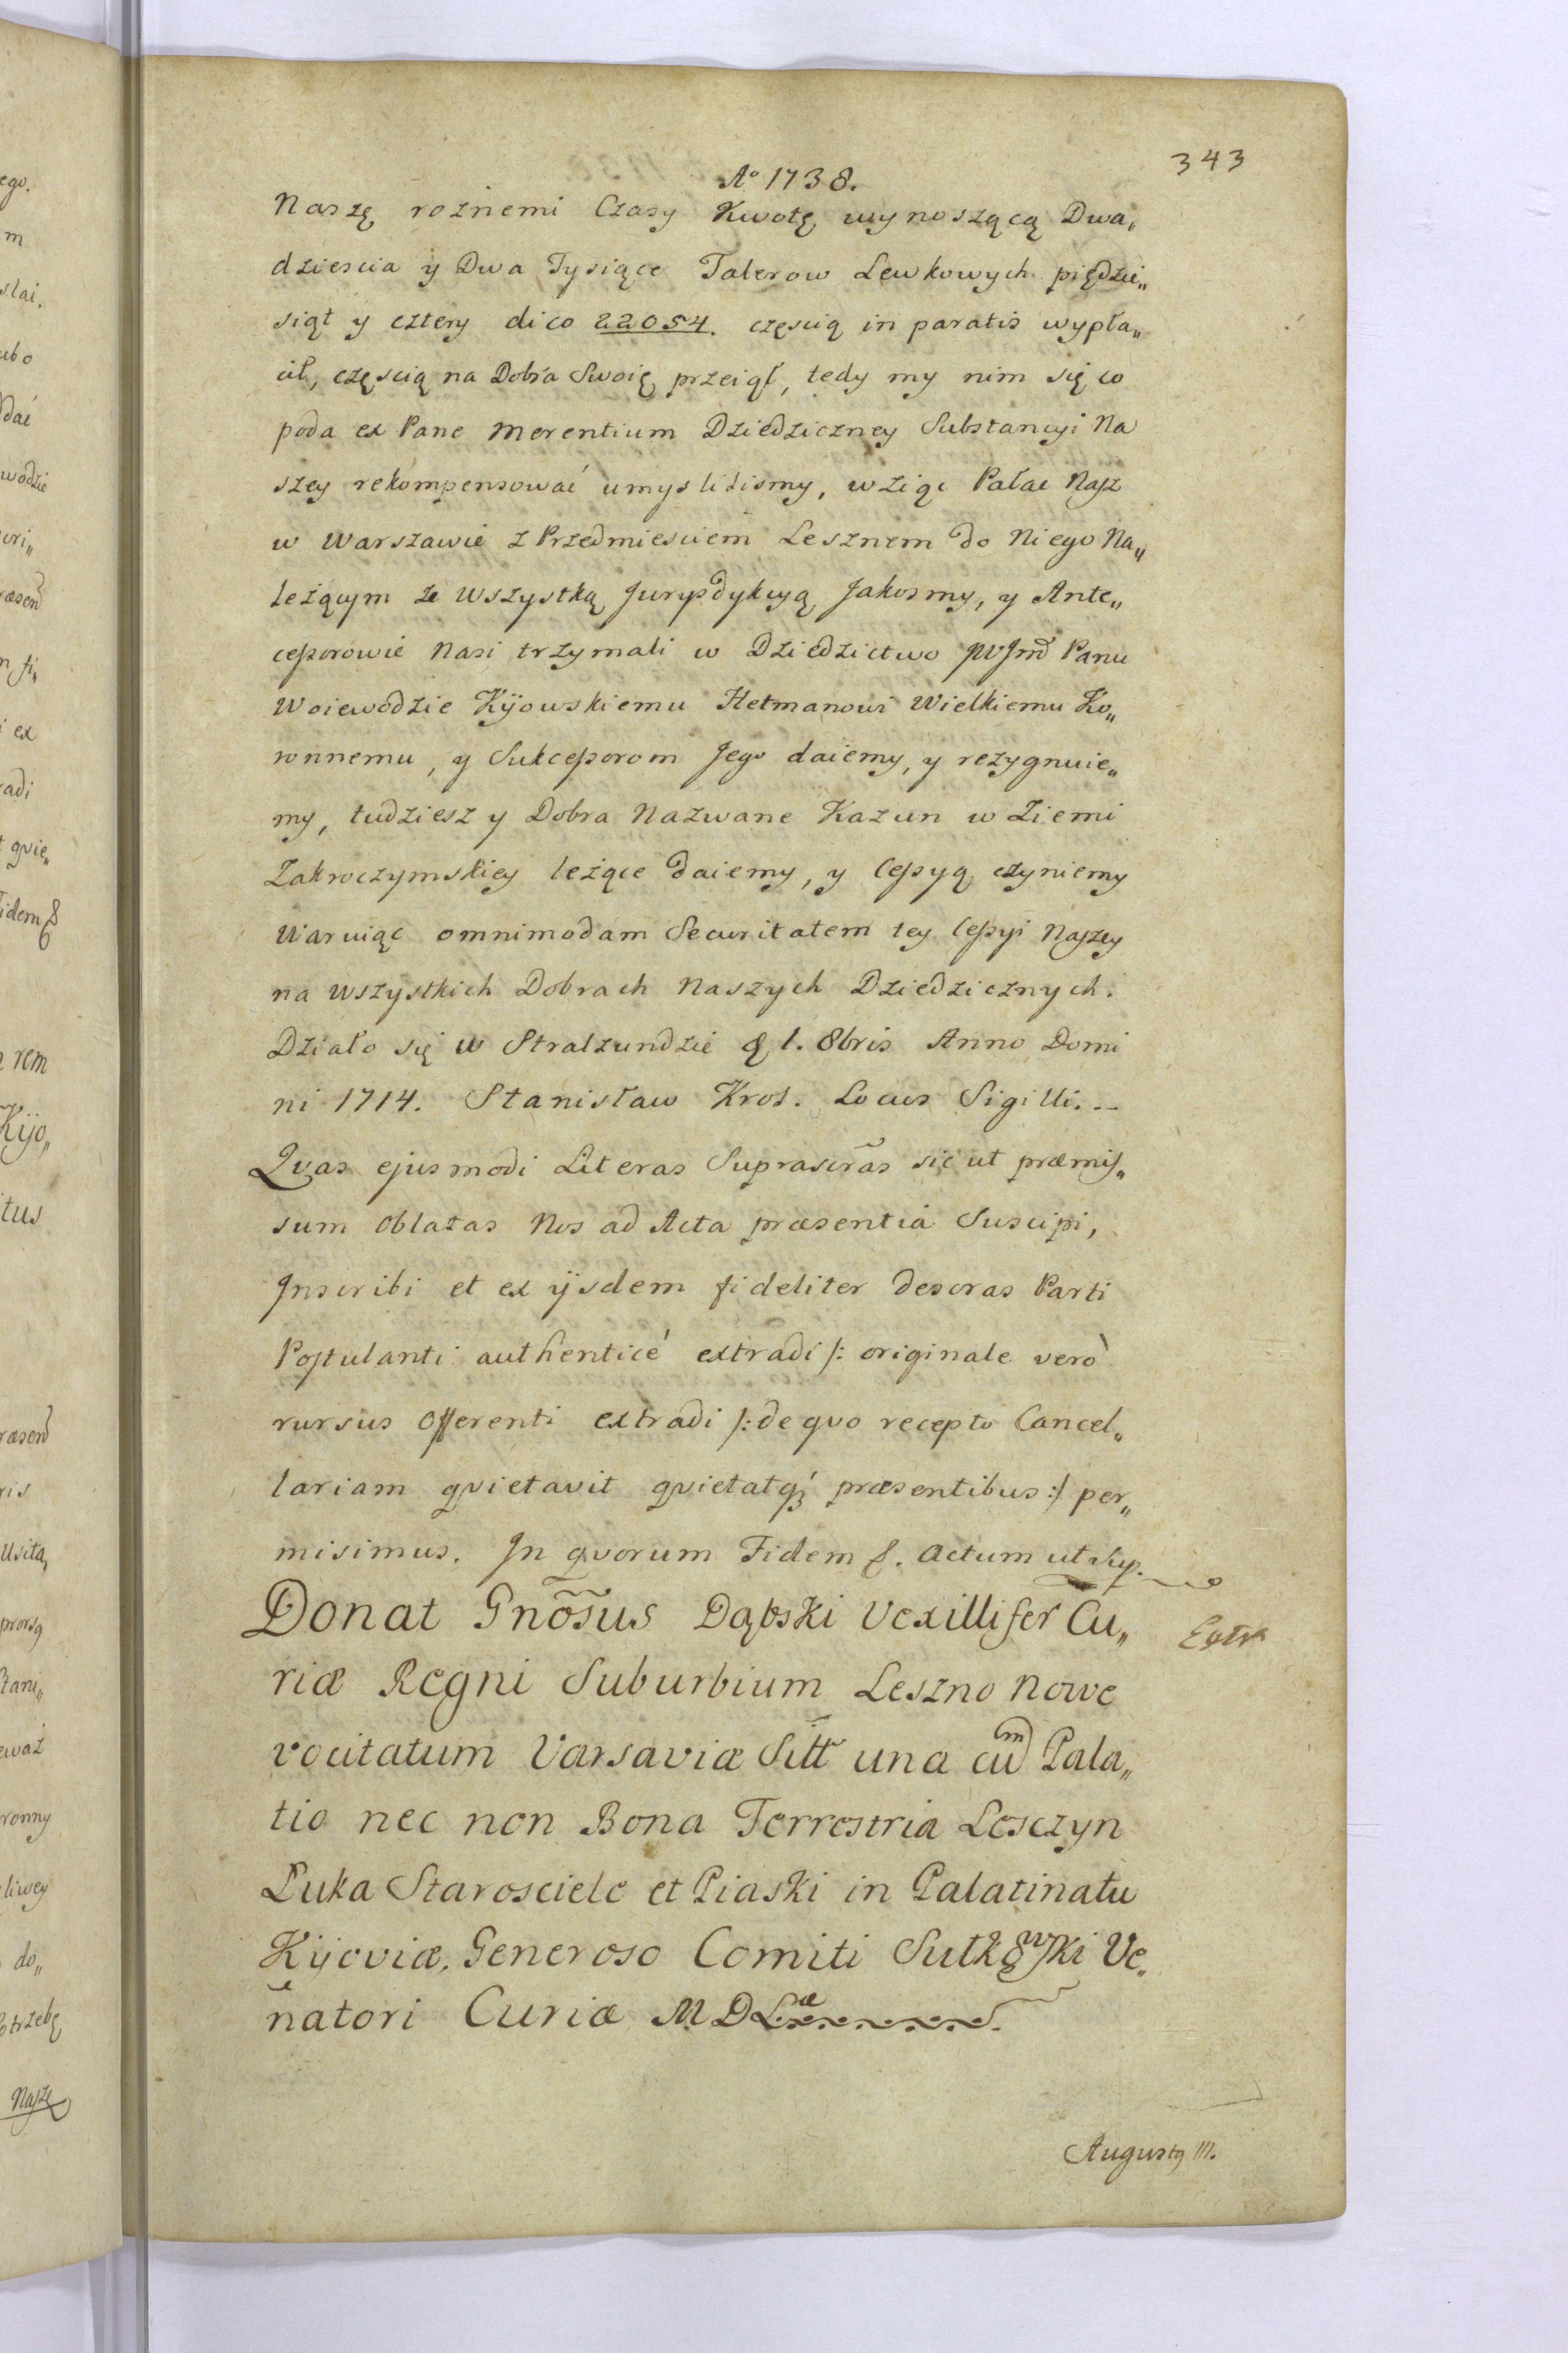 343
Aº 1738.
Naszę roznemi Czasy Kwotę wynoszącą Dwa„
dziescia y Dwa Tysiące Talerow Lewkowych piędzie„
siąt y cztery dico 22054. częscią in paratis wypła„
cił, częscią na Dobra Swoię przeiął, tedy my nim się co
poda ex Pane Merentium Dziedziczney Substancyi Na
szey rekompensować umyslilismy, wziąc Pałac Nasz
w Warszawie z Przedmiesciem Lesznem do Niego Na„
leżącym ze wszystką Jurysdykcyą Jakosmy, y Ante„
cessorowie Nasi trzymali w Dziedzictwo JWJmd Panu
Woiewodzie Kijowskiemu Hetmanowi Wielkiemu Ko„
ronnemu, y Sukcessorom Jego daiemy, y rezygnuie„
my, tudziesz y Dobra Nazwane Kazun w Ziemi
Zakroczymskiey leżące daiemy, y Cessyą czyniemy
Waruiąc omnimodam Securitatem tey Cessyi Naszey
na wszystkich Dobrach Naszych Dziedzicznych.
Działo się w Stralzundzie d 1. 8bris Anno Domi
ni 1714. Stanisław Krol. Locus Sigilli.--
Qvas ejusmodi Literas Suprascrãs sic ut præmis„
sum Oblatas Nos ad Acta præsentia Suscipi,
Inscribi et ex ijsdem fideliter descras Parti
Postulanti authenticè extradi /: originale verò
rursus Offerenti extradi /: de qvo recepto Cancel„
lariam qvietavit qvietatq; præsentibus :/ per„
misimus. In qvorum Fidem &. Actum ut Sup.
Donat Gnõsus Dąbski Vexillifer Cu„
riæ Regni Suburbium Leszno Nowe
vocitatum Varsaviæ Sitt una cum Pala„
tio nec non Bona Terrestria Lesczyn
Puka Starosciele et Piaski in Palatinatu
Kijoviæ, Generoso Comiti Sułkowski Ve„
natori Curiæ M D Læ
Extr
Augustg III.